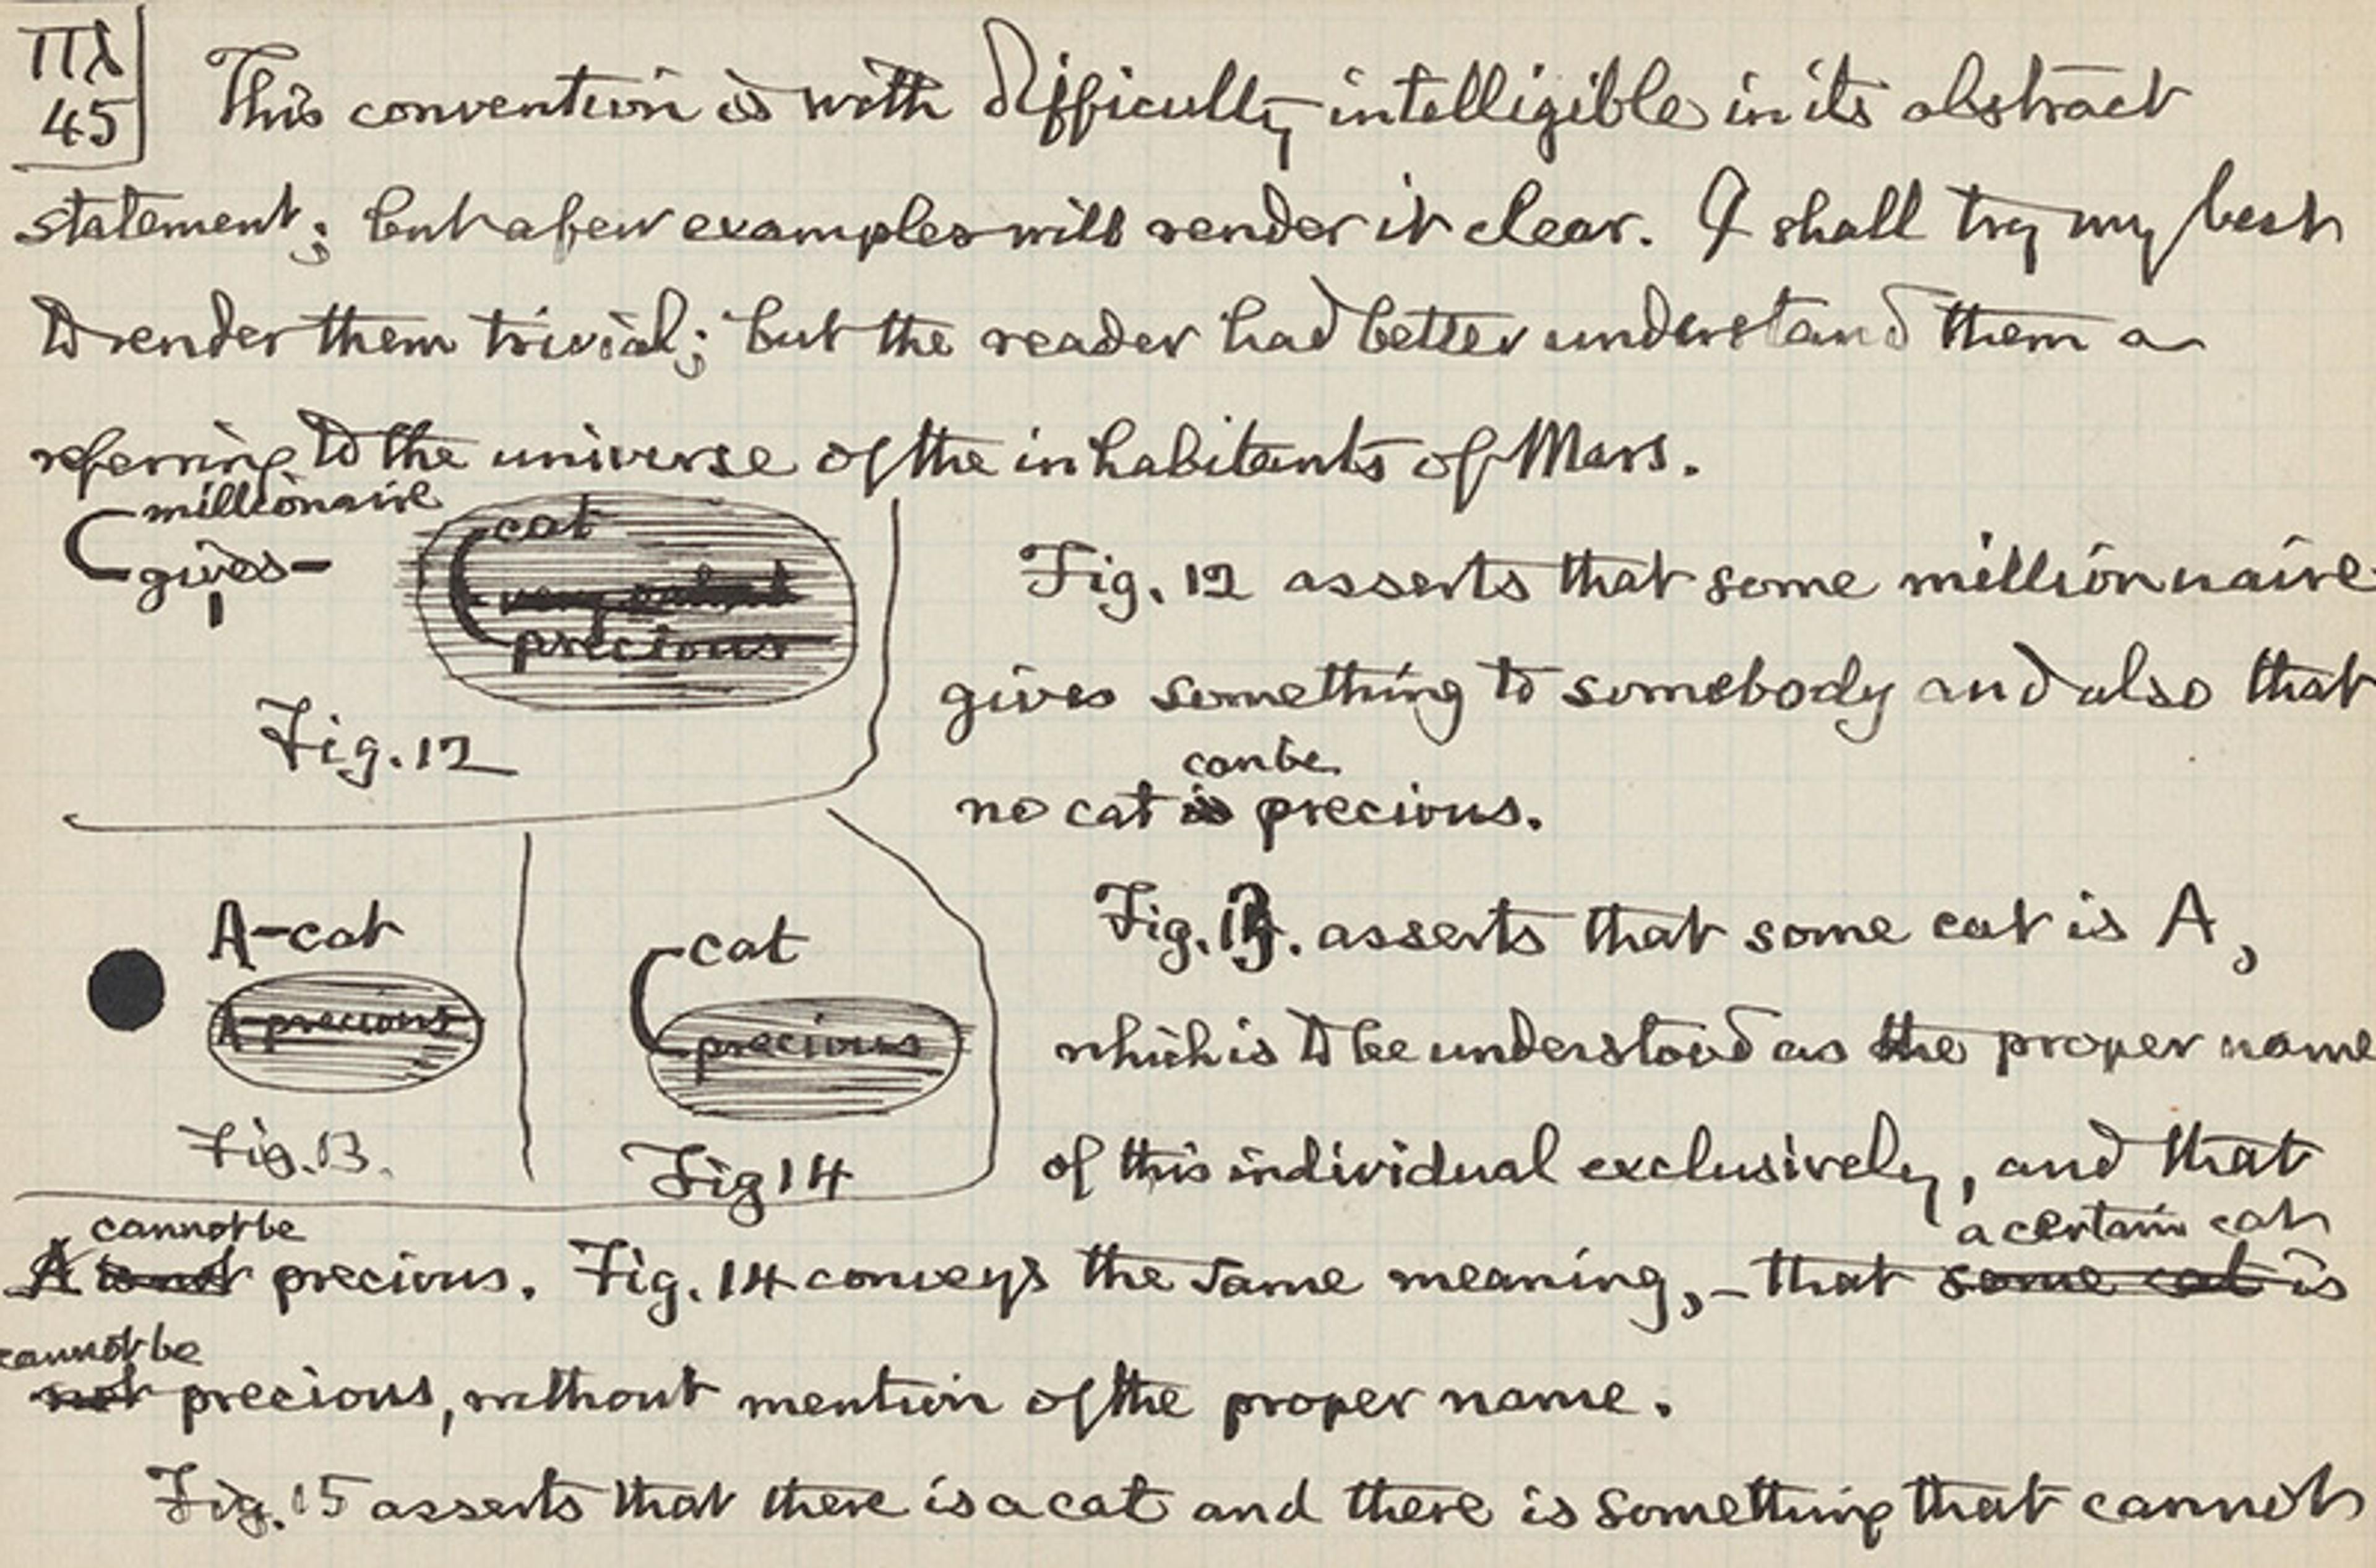 Πλ
45
This convention is with difficulty intelligible in its abstract
statement; but a few examples will render it clear. I shall try my best
to render them trivial; but the reader had better understand them a
referring to the universe of the inhabitants of Mars.
millionaire
gives
cat
precious
Fig. 12
Fig. 12 asserts that some millionnaire
gives something to somebody and also that
can be
no cat is precious.
A-cat
A-precious
Fig. 13.
cat
precious
Fig 14
Fig. 13. asserts that some cat is A,
which is to be understood as the proper name
of this individual exclusively, and that
cannot be
A is not precious. Fig. 14 conveys the same meaning,– that some cat is
a certain cat
cannot be
not precious, without mention of the proper name.
Fig. 15 asserts that there is a cat and there is something that cannot